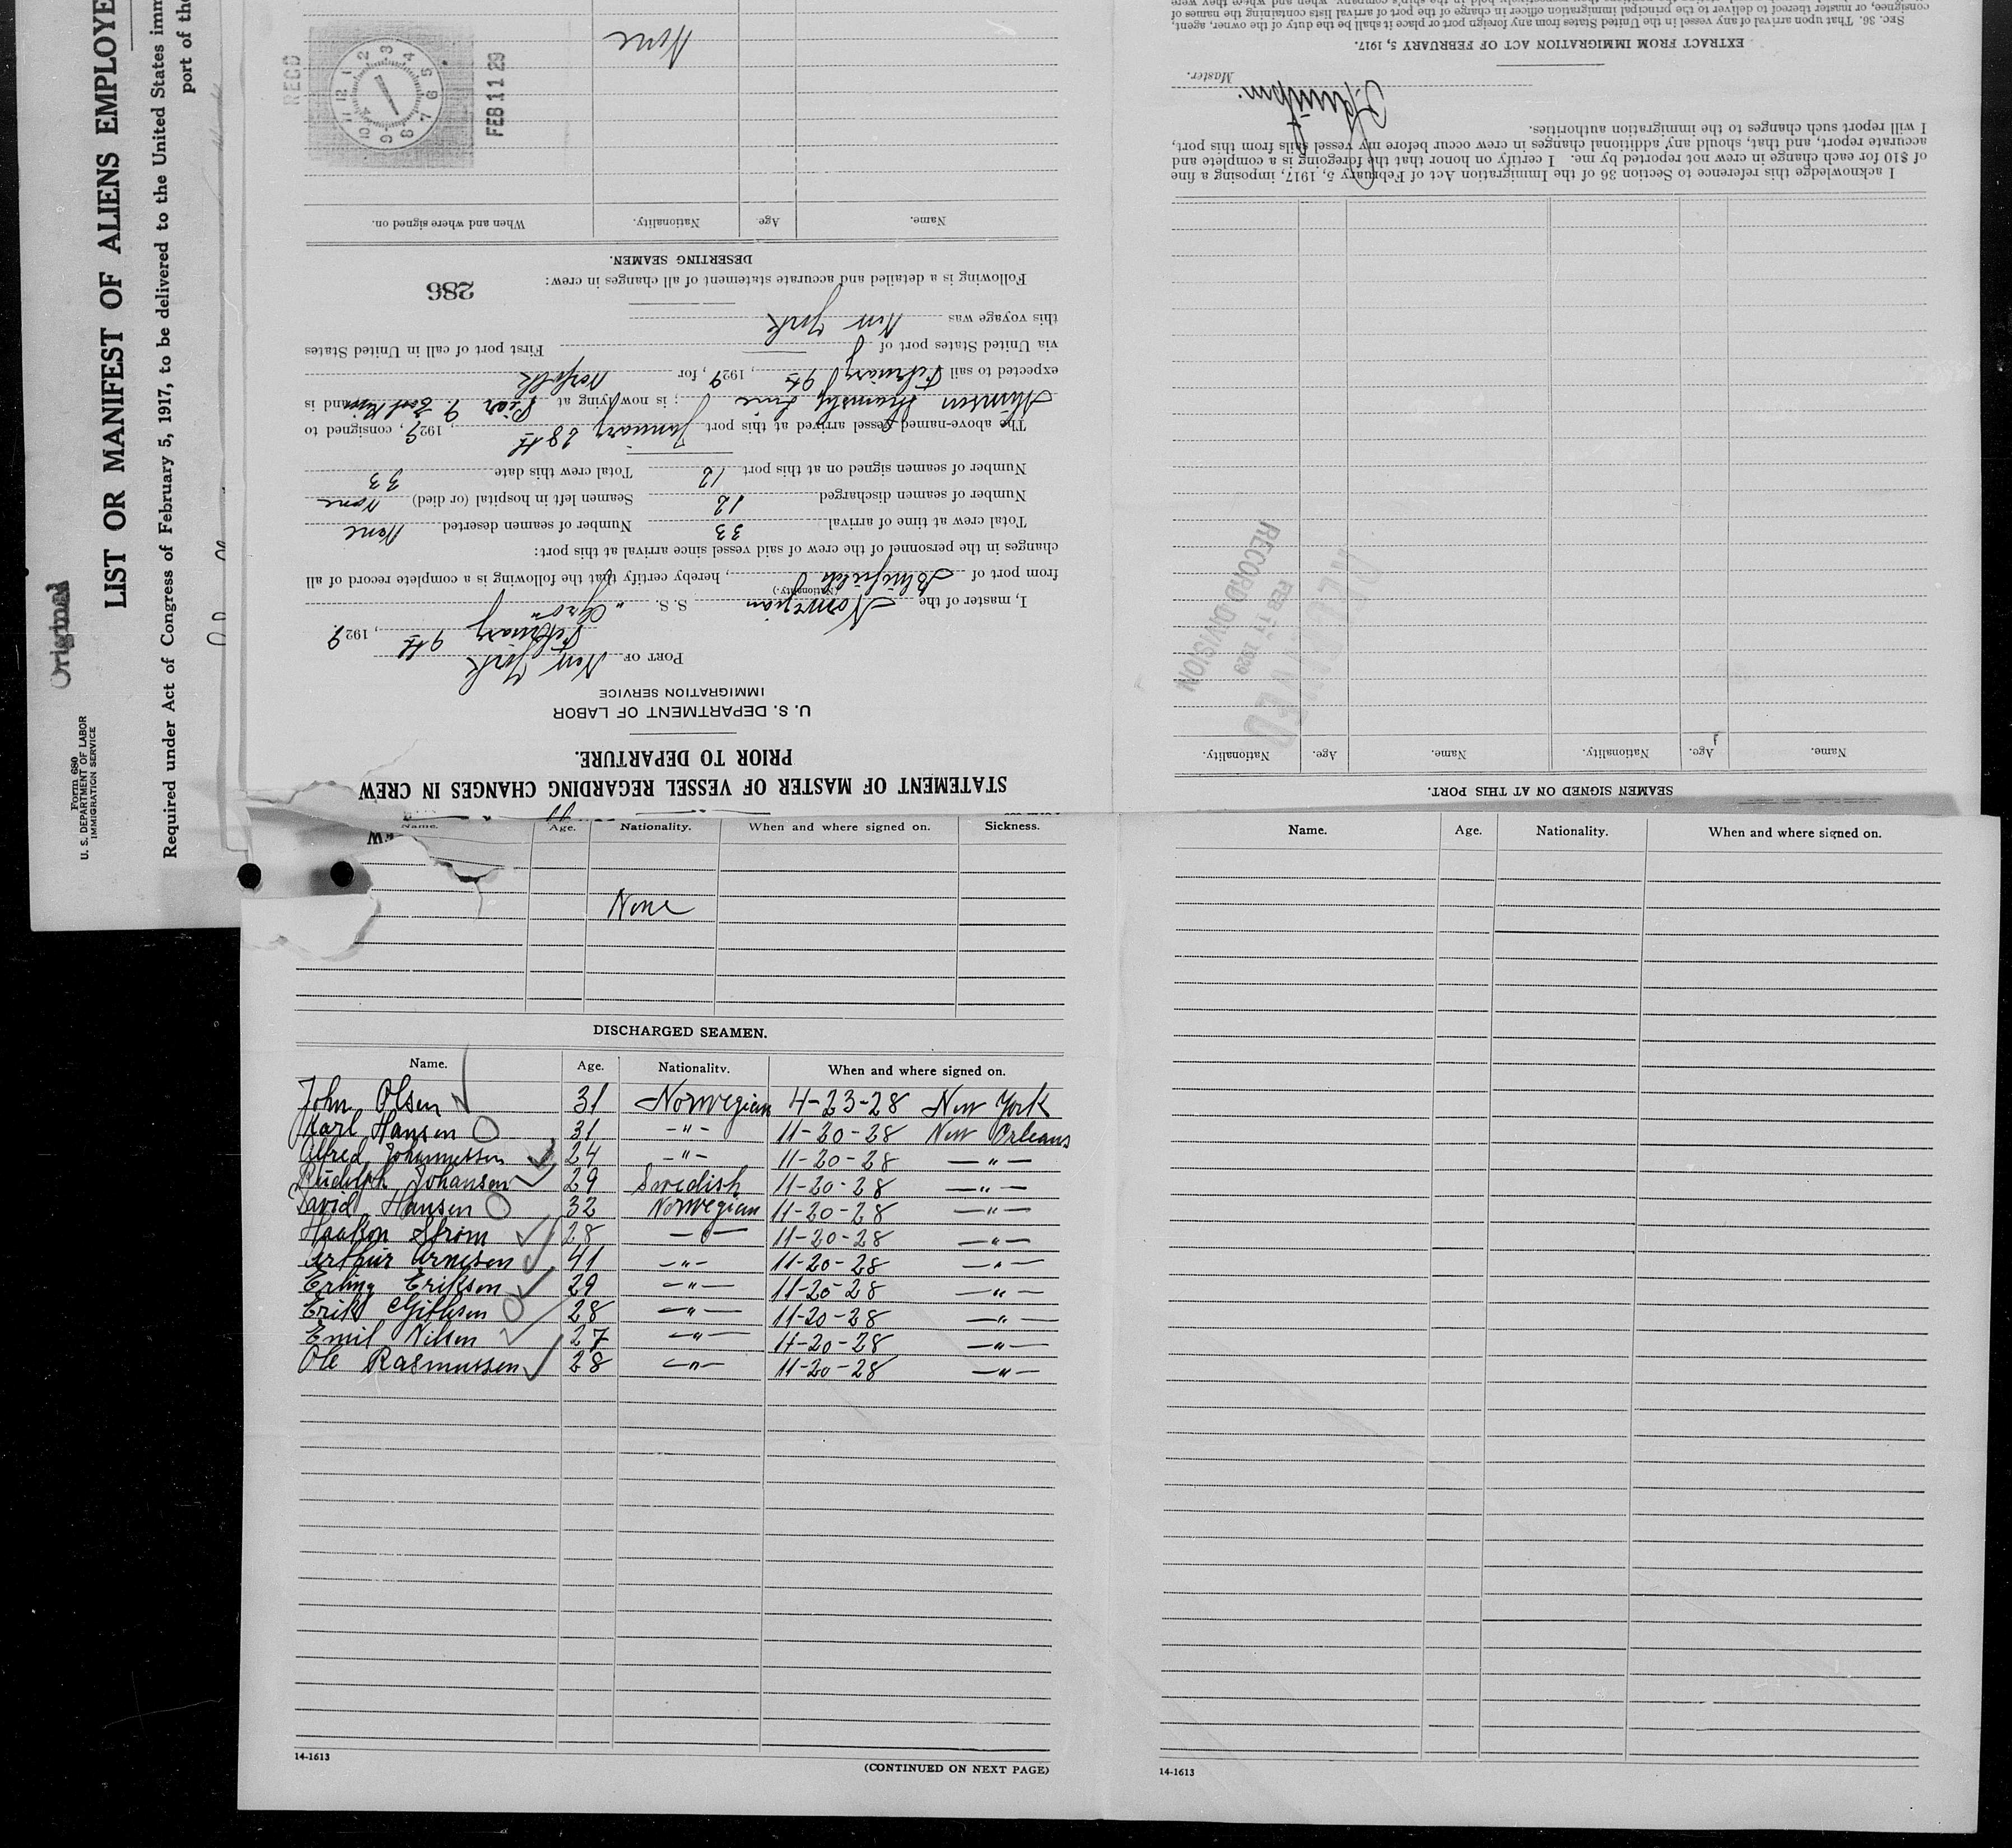 Original
Form 680
U. S. DEPARTMENT OF LABOR
IMMIGRATION SERVICE
LIST OR MANIFEST OF ALIENS EMPLOYE
Required under Act of Congress of February 5, 1917, to be delivered to the United States imm
port of the
STATEMENT OF MASTER OF VESSEL REGARDING CHANGES IN CREW
PRIOR TO DEPARTURE.
U. S. DEPARTMENT OF LABOR
IMMIGRATION SERVICE
PORT OF New York
February 9th, 1929.
I, master of the Norwegian S. S. "
(Nationality.)
from port of , hereby certify that the following is a complete record of all
changes in the personnel of the crew of said vessel since arrival at this port:
Total crew at time of arrival 33 Number of seamen deserted None
Number of seamen discharged 12 Seamen left in hospital (or died) None
Number of seamen signed on at this port 12 Total crew this date 33
The above-named vessel arrived at this port January 28th 1929, consigned to
Munson Steamship Line; is now lying at Pier 9 East River and is
expected to sail February 9th, 1929, for Norfolk
via United States port of First port of call in United States
this voyage was New York
Following is a detailed and accurate statement of all changes in crew:
286
DESERTING SEAMEN.
Name. Age. Nationality. When and where signed on.
None
RECD
FEB 11 29
12 1 2 3 4 5 6 7 8 9 10 11
SEAMEN SIGNED ON AT THIS PORT.
Name. Age. Nationality. Name. Age. Nationality.
RECEIVED
FEB 11 1929
RECORD DIVISION
I acknowledge this reference to Section 36 of the Immigration Act of February 5, 1917, imposing a fine
of $10 for each change in crew not reported by me. I certify on honor that the foregoing is a complete and
accurate report, and that, should any additional changes in crew occur before my vessel sails from this port,
I will report such changes to the immigration authorities.
Master.
EXTRACT FROM IMMIGRATION ACT OF FEBRUARY 5, 1917.
SEC. 36. That upon arrival of any vessel in the United States from any foreign port or place it shall be the duty of the owner, agent,
consignee, or master thereof to deliver to the principal immigration officer in charge of the port of arrival lists containing the names of
Name. Age. Nationality. When and where signed on. Sickness.
None
DISCHARGED SEAMEN.
Name. Age. Nationality. When and where signed on.
John Olsen 31 Norwegian 4-23-28 New York
Karl Hansen 31 -"- 11-20-28 New Orleans
Alfred Johannessen 24 -"- 11-20-28 -"-
Rudolph Johansen 29 Swedish 11-20-28 -"-
David Hansen 32 Norwegian 11-20-28 -"-
Haakon Strom 28 -"- 11-20-28 -"-
Arthur Arnesen 41 -"- 11-20-28 -"-
Erling Eriksen 29 -"- 11-20-28 -"-
Erik 28 -"- 11-20-28 -"-
Emil Nilsen 27 -"- 11-20-28 -"-
Ole Rasmussen 28 -"- 11-20-28 -"-
14-1613
(CONTINUED ON NEXT PAGE)
Name. Age. Nationality. When and where signed on.
14-1613